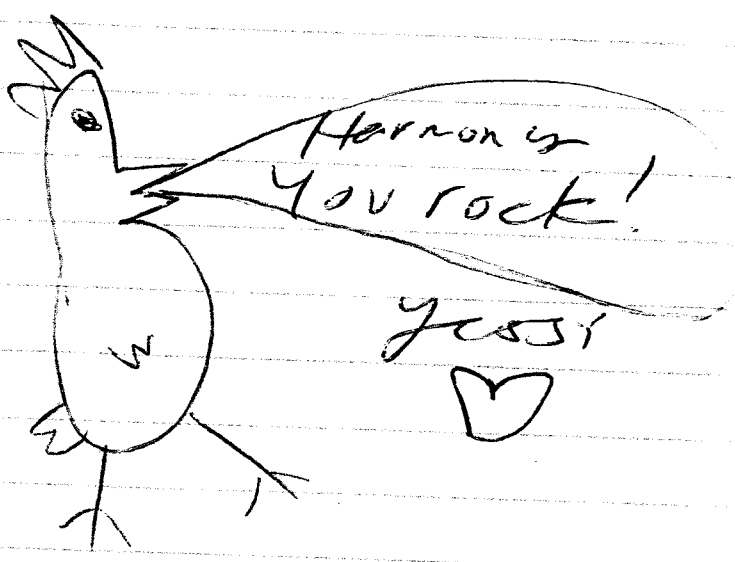 Harmony
You rock!
Yossi